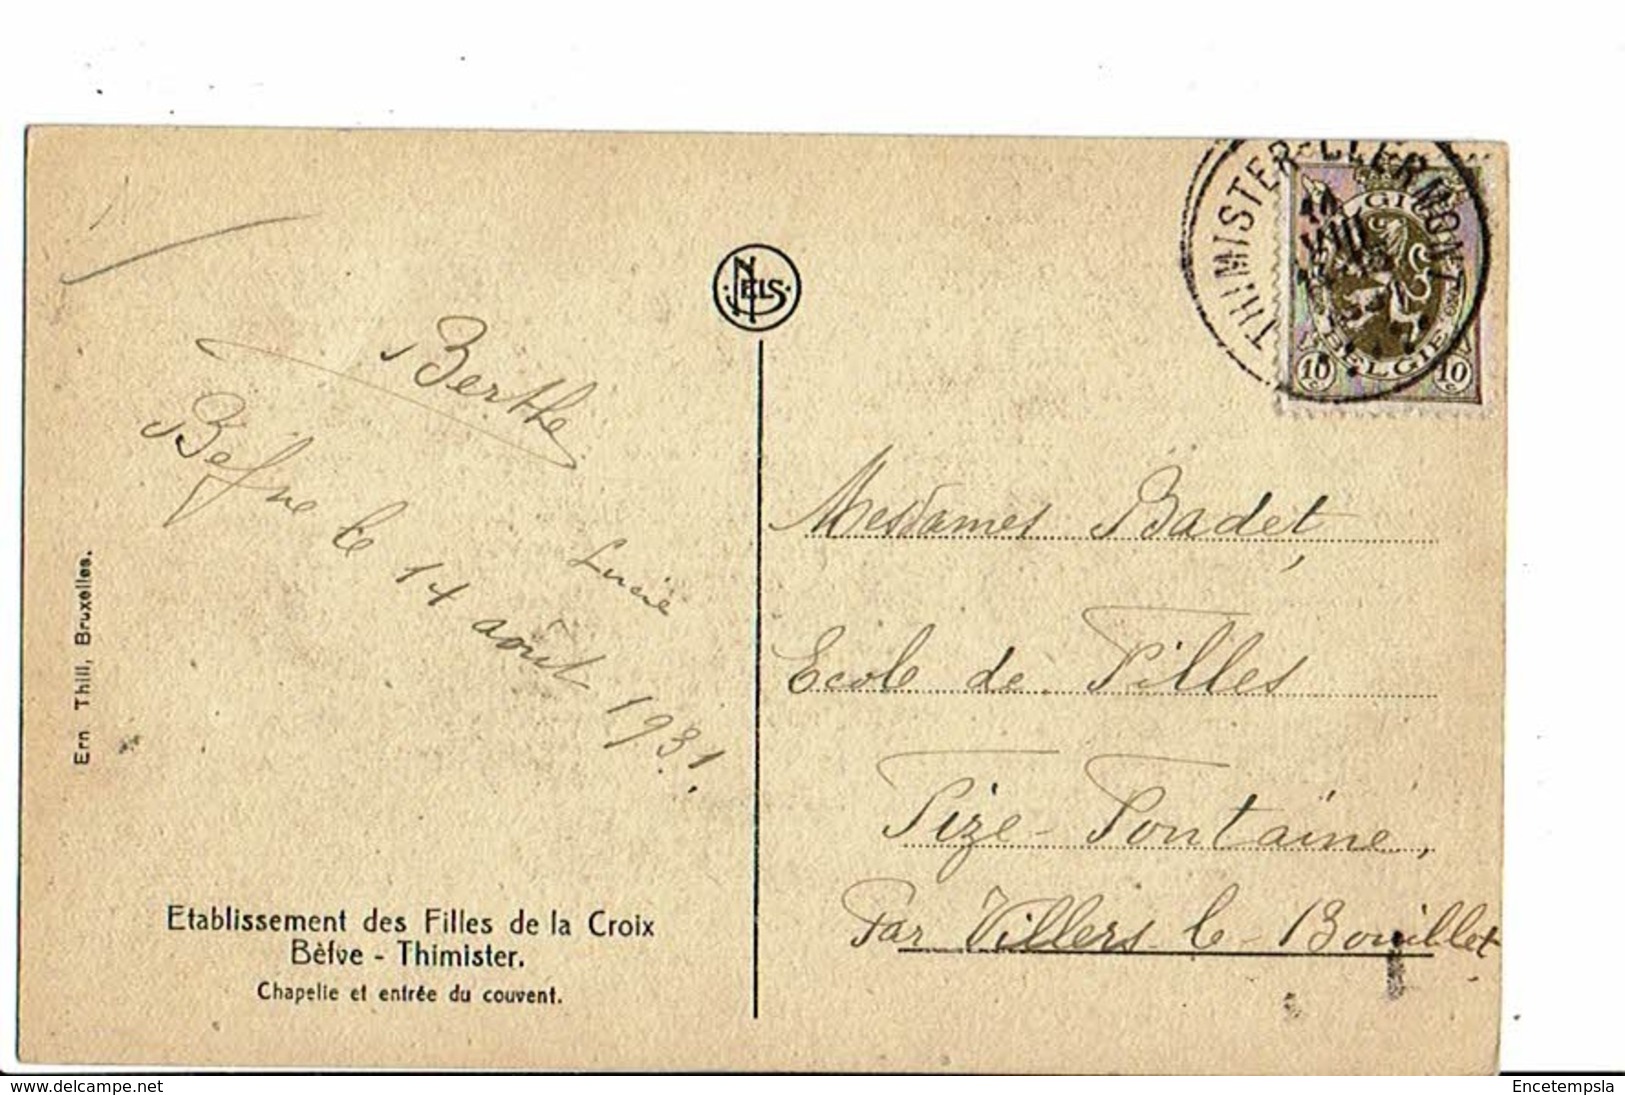 THIMISTER-CLERMONT
14
VIII
BELGIQUE
BELGIE
10 c 10 c
NELS
Berthe
Befve le 14 août 1931.
Lucie
Mesdames Badet,
Ecole de Filles
Fize-Fontaine,
Par Villers-le-Bouillet
Ern Thill, Bruxelles.
Etablissement des Filles de la Croix
Bèfve - Thimister.
Chapelle et entrée du couvent.
www.delcampe.net
Encetempsla